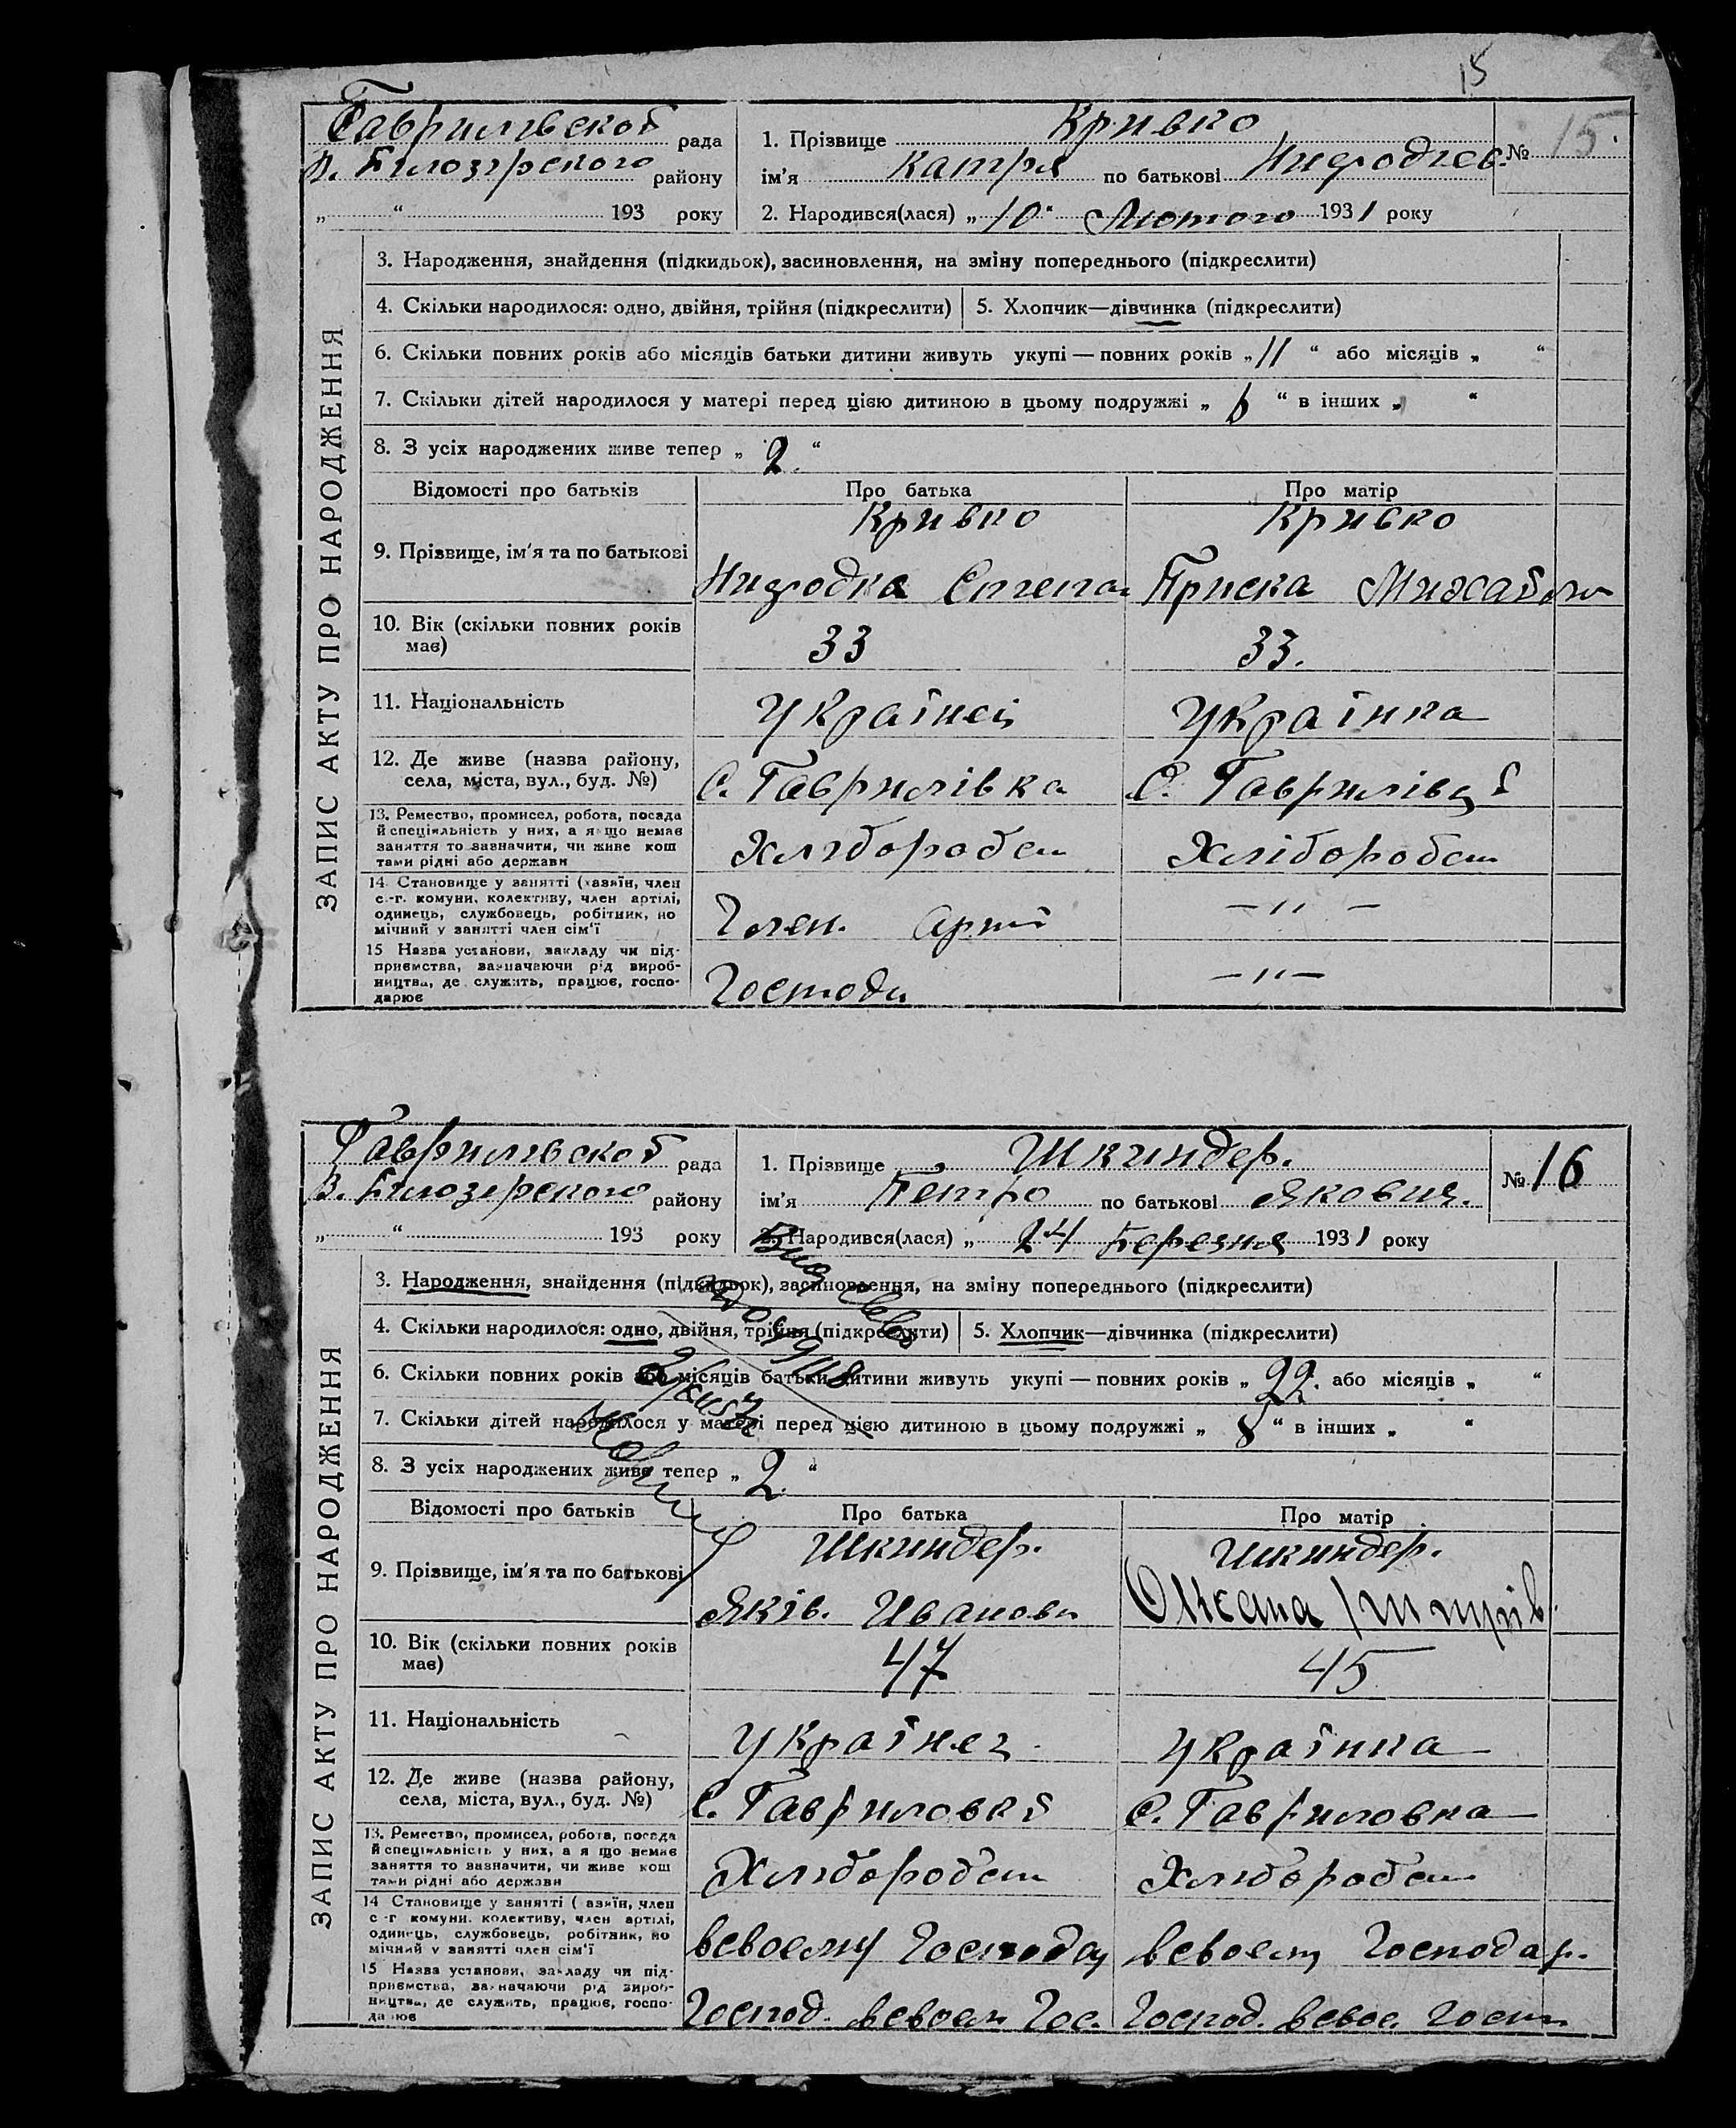 15
Гаврилівской рада
В. Білозірского району
„ “ 193 року
1. Прізвище Кривко
№ 15.
ім'я Катря по батькові
2. Народився(лася) „10“ Лютого 1931 року
ЗАПИС АКТУ ПРО НАРОДЖЕННЯ
3. Народження, знайдення (підкидьок), засиновлення, на зміну попереднього (підкреслити)
4. Скільки народилося: одно, двійня, трійня (підкреслити) 5. Хлопчик—дівчинка (підкреслити)
6. Скільки повних років або місяців батьки дитини живуть укупі — повних років „11“ або місяців „ “
7. Скільки дітей народилося у матері перед цією дитиною в цьому подружжі „ “ в інших „ “
8. З усіх народжених живе тепер „2.“
Відомості про батьків Про батька Про матір
9. Прізвище, ім'я та по батькові
Кривко Кривко
Приска
10. Вік (скільки повних років має) 33 33.
11. Національність Українець Українка
12. Де живе (назва району, села, міста, вул., буд. №) С. Гаврилівка С. Гаврилівці
13. Ремество, промисел, робота, посада
й спеціяльність у них, а я що немає
заняття то зазначити, чи живе кош
тами рідні або держави
Хлібороб Хлібороб
14. Становище у занятті (хазяїн, член
с.-г. комуни, колективу, член артілі,
одинець, службовець, робітник, по
мічний у занятті член сім'ї
Член. — „ —
15 Назва установи, закладу чи під-
приємства, зазначаючи рід вироб-
ництва, де служить, працює, госпо-
дарює
— „ —
Гаврилівской рада
В. Білозерского району
„ “ 193 року
1. Прізвище Шкиндер.
№ 16
ім'я Петро по батькові Якович.
2. Народився(лася) „ 24 Березня 1931 року
ЗАПИС АКТУ ПРО НАРОДЖЕННЯ
3. Народження, знайдення (підкидьок), засиновлення, на зміну попереднього (підкреслити)
4. Скільки народилося: одно, двійня, трійня (підкреслити) 5. Хлопчик—дівчинка (підкреслити)
6. Скільки повних років або місяців батьки дитини живуть укупі — повних років „22. або місяців „ “
7. Скільки дітей народилося у матері перед цією дитиною в цьому подружжі „ 8 “ в інших „ “
8. З усіх народжених живе тепер „2.“
Відомості про батьків Про батька Про матір
9. Прізвище, ім'я та по батькові
Шкиндер. Шкиндер.
Яків. Иванови Оксана
10. Вік (скільки повних років має) 47 45
11. Національність Українец Українка
12. Де живе (назва району, села, міста, вул., буд. №) С. Гавриловка С. Гавриловка
13. Ремество, промисел, робота, посада
й спеціяльність у них, а я що немає
заняття то зазначити, чи живе кош
тами рідні або держави
Хлібороб Хлібороб
14 Становище у занятті ( азяїн, член
с -г комуни, колективу, член артілі,
одинець, службовець, робітник, по
мічний у занятті член сім'ї
всвоему Господар всвоему Господар.
15 Назва установи, закладу чи під-
приємства, зазначаючи рід вироб-
ництва, де служить, працює, госпо-
дарює
Господ. всвоем Гос. Господ. всвое. Госп